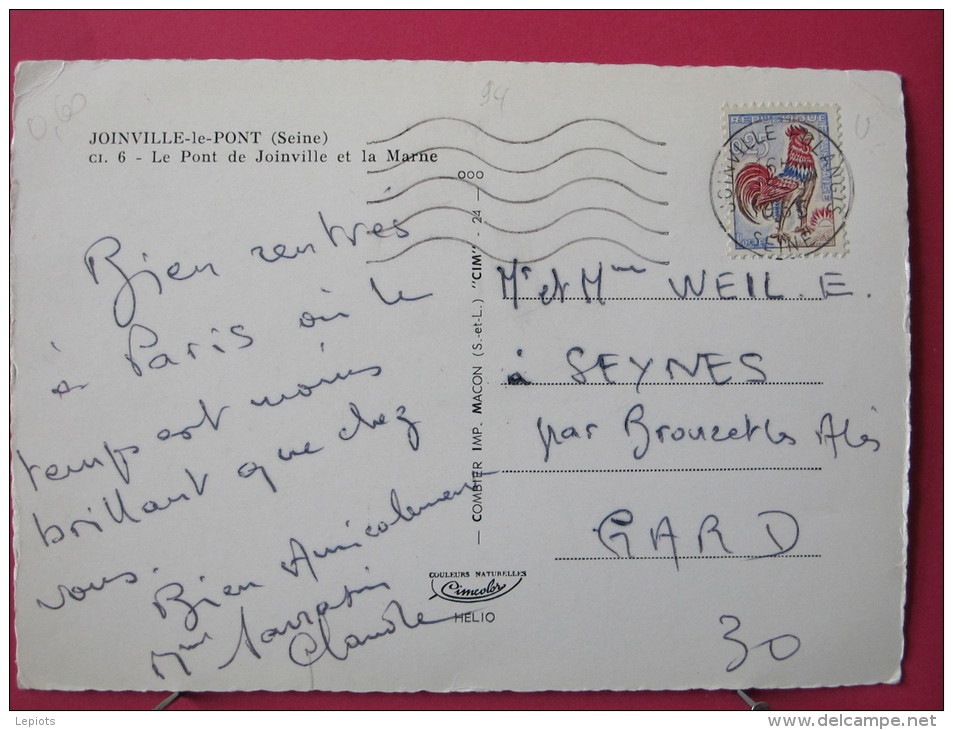 0,60
94
U
JOINVILLE-le-PONT (Seine)
CI. 6 - Le Pont de Joinville et la Marne
Bien rentrés
à Paris où le
temps est moins
brillant que chez
vous.
Bien Amicalement
Mme Sarrasin
Claude
ooo
COMBIER IMP. MACON (S.-et-L.) "CIM" - 24 -
COULEURS NATURELLES
Cimcolor
HELIO
REPUBLIQUE
JOINVILLE
SEINE
Mr et Mme WEIL. E.
à SEYNES
par Brouzet les Alès
GARD
30
Lepiots
delcampe.net